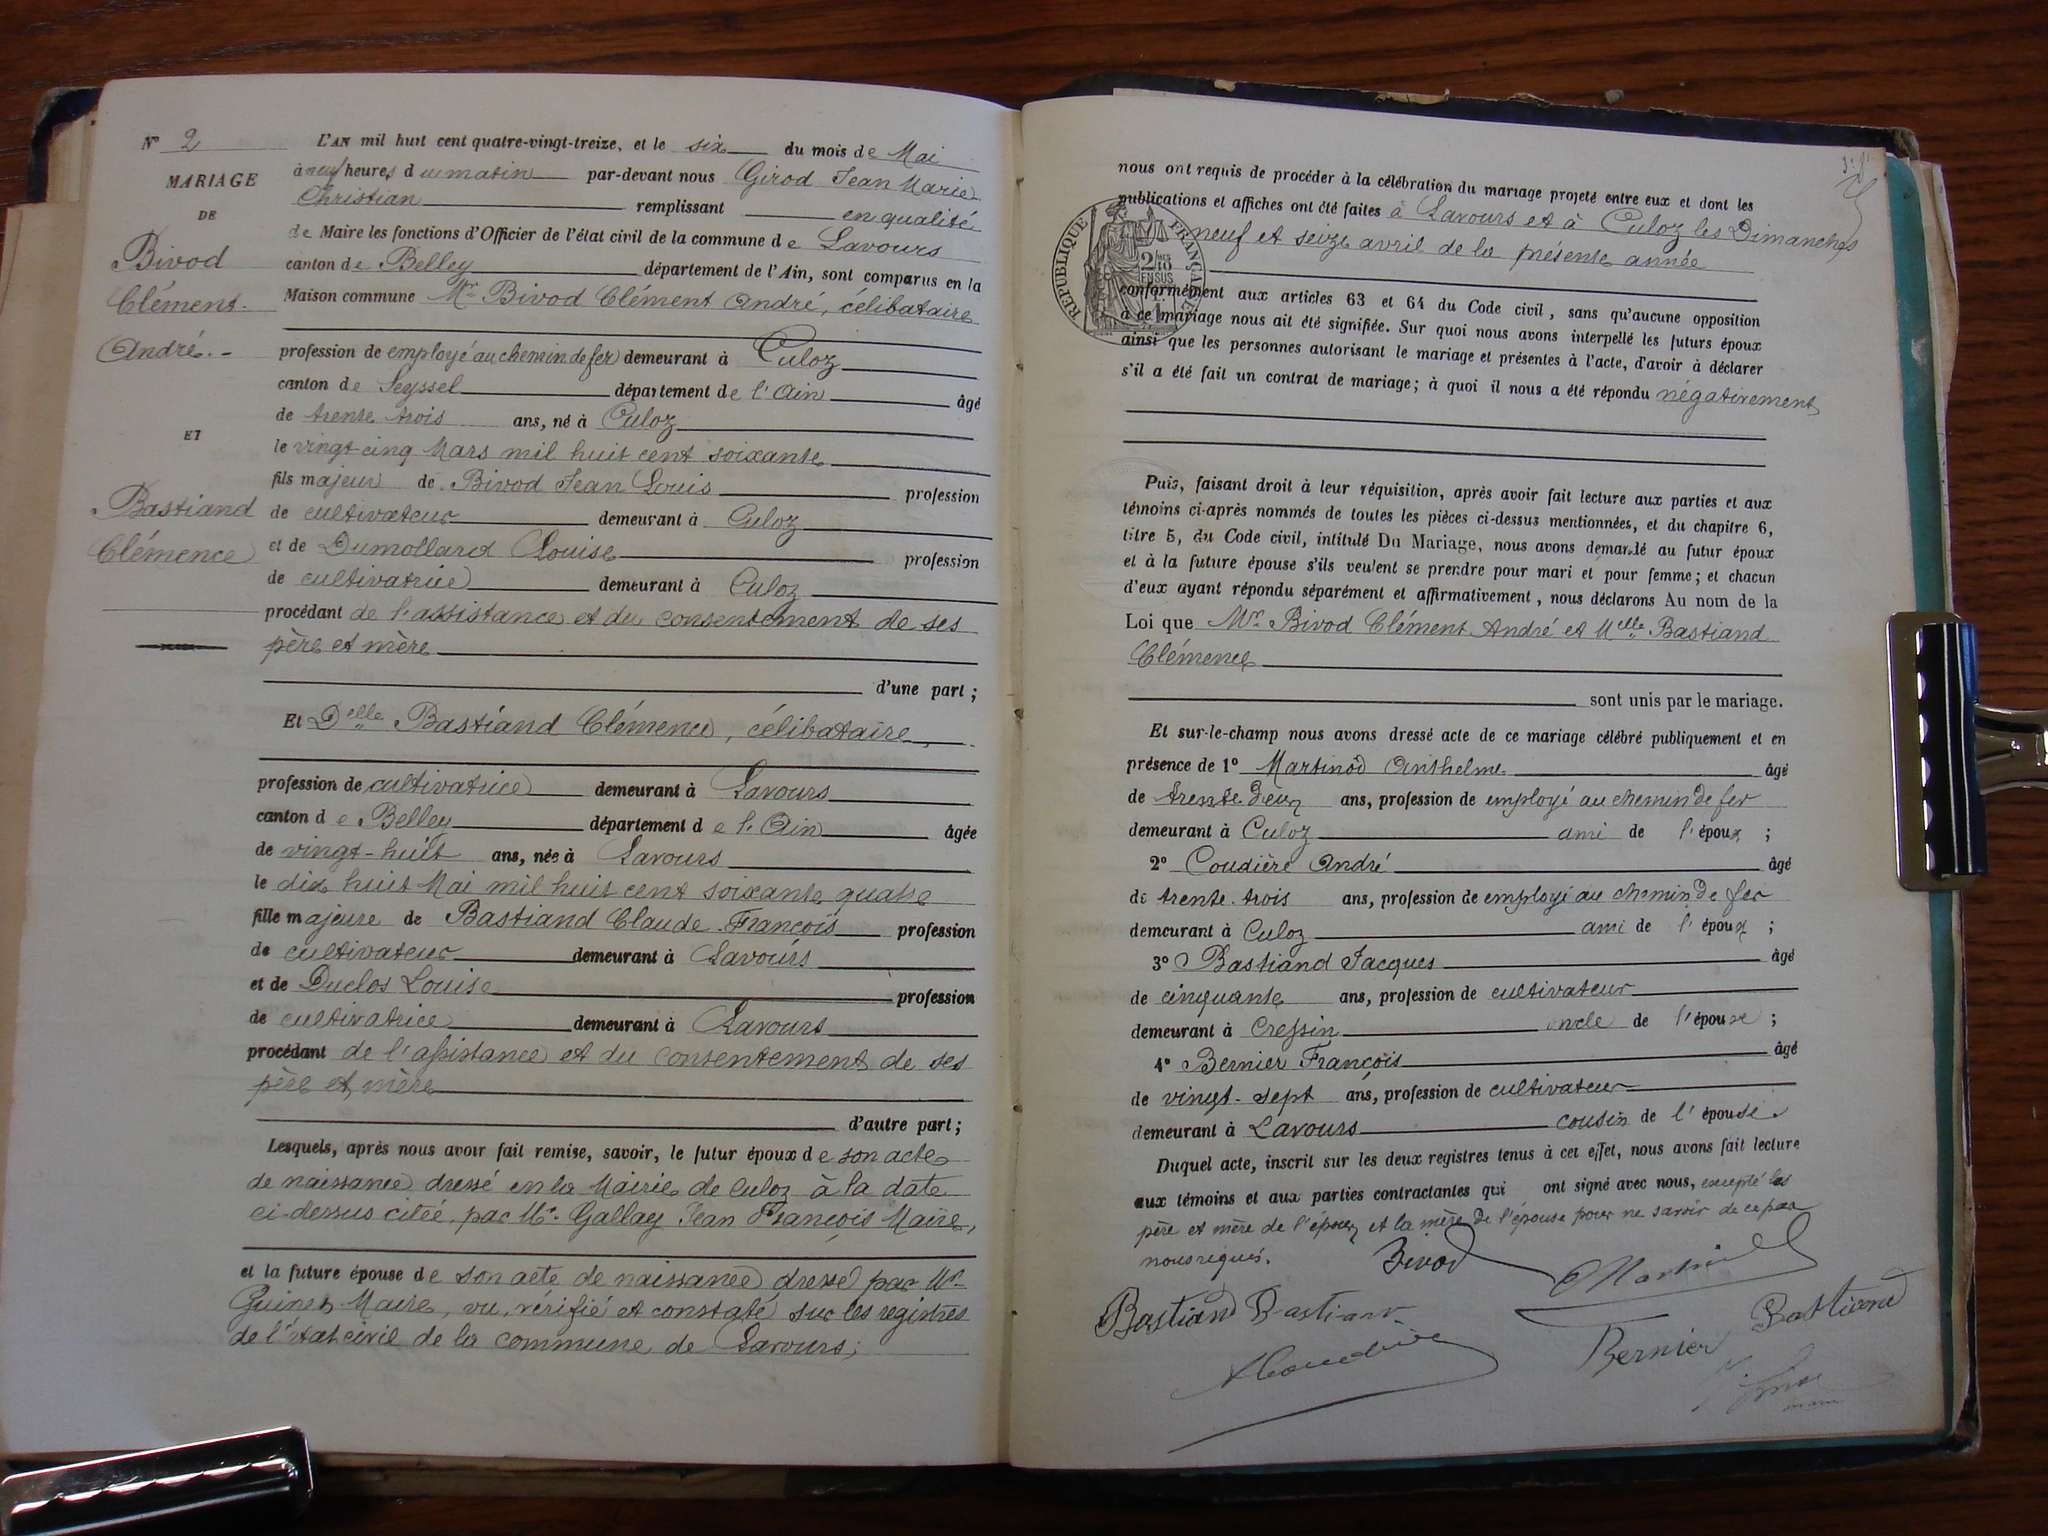 N° 2
MARIAGE
DE
Bivod
Clément
André.
ET
Bastiand
Clémence
L'AN mil huit cent quatre-vingt-treize, et le six du mois de Mai
à neuf heures du matin par-devant nous Girod Jean Marie
Christian remplissant en qualité
de Maire les fonctions d'Officier de l'état civil de la commune de Lavours
canton de Belley département de l'Ain, sont comparus en la
Maison commune Mr. Bivod Clément André, célibataire
profession de employé au chemin de fer demeurant à Culoz
canton de Seyssel département de l'Ain âgé
de trente trois ans, né à Culoz
le vingt-cinq Mars mil huit cent soixante
fils majeur de Bivod Jean Louis profession
de cultivateur demeurant à Culoz
et de Dumollard Louise profession
de cultivatrice demeurant à Culoz
procédant de l'assistance et du consentement de ses
père et mère
d'une part ;
Et Delle Bastiand Clémence, célibataire,
profession de cultivatrice demeurant à Lavours
canton de Belley département de l'Ain âgée
de vingt-huit ans, née à Lavours
le dix huit Mai mil huit cent soixante quatre
fille majeure de Bastiand Claude François profession
de cultivateur demeurant à Lavours
et de Duclos Louise profession
de cultivatrice demeurant à Lavours
procédant de l'assistance et du consentement de ses
père et mère
d'autre part ;
Lesquels, après nous avoir fait remise, savoir, le futur époux de son acte
de naissance dressé en la Mairie de Culoz à la date
ci-dessus citée, par Mr. Gallay Jean François Maire,
et la future épouse de son acte de naissance dressé par Mr.
Guinet Maire, vu, vérifié et constaté sur les registres
de l'état civil de la commune de Lavours ;
nous ont requis de procéder à la célébration du mariage projeté entre eux et dont les
publications et affiches ont été faites à Lavours et à Culoz les Dimanches
neuf et seize avril de la présente année
RÉPUBLIQUE FRANÇAISE
2/10 EN SUS
conformément aux articles 63 et 64 du Code civil, sans qu'aucune opposition
à ce mariage nous ait été signifiée. Sur quoi nous avons interpellé les futurs époux
ainsi que les personnes autorisant le mariage et présentes à l'acte, d'avoir à déclarer
s'il a été fait un contrat de mariage ; à quoi il nous a été répondu négativement
Puis, faisant droit à leur réquisition, après avoir fait lecture aux parties et aux
témoins ci-après nommés de toutes les pièces ci-dessus mentionnées, et du chapitre 6,
titre 5, du Code civil, intitulé Du Mariage, nous avons demandé au futur époux
et à la future épouse s'ils veulent se prendre pour mari et pour femme ; et chacun
d'eux ayant répondu séparément et affirmativement, nous déclarons Au nom de la
Loi que Mr. Bivod Clément André et Melle Bastiand
Clémence
sont unis par le mariage.
Et sur-le-champ nous avons dressé acte de ce mariage célébré publiquement et en
présence de 1° Martinod Anthelme âgé
de trente deux ans, profession de employé au chemin de fer
demeurant à Culoz ami de l'époux ;
2° Coudière André âgé
de trente-trois ans, profession de employé au chemin de fer
demeurant à Culoz ami de l'époux ;
3° Bastiand Jacques âgé
de cinquante ans, profession de cultivateur
demeurant à Cressin oncle de l'épouse ;
4° Bernier François âgé
de vingt-sept ans, profession de cultivateur
demeurant à Lavours cousin de l'épouse
Duquel acte, inscrit sur les deux registres tenus à cet effet, nous avons fait lecture
aux témoins et aux parties contractantes qui ont signé avec nous, excepté les
père et mère de l'époux et la mère de l'épouse pour ne savoir de ce par
nous requis.
Bivod
Bastiand Bastiand
Bastiand
Bernier